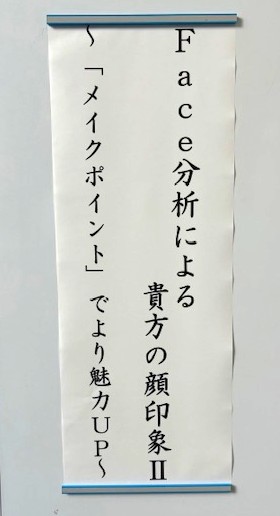 Face分析による
貴方の顔印象Ⅱ
~「メイクポイント」でより魅力UP~